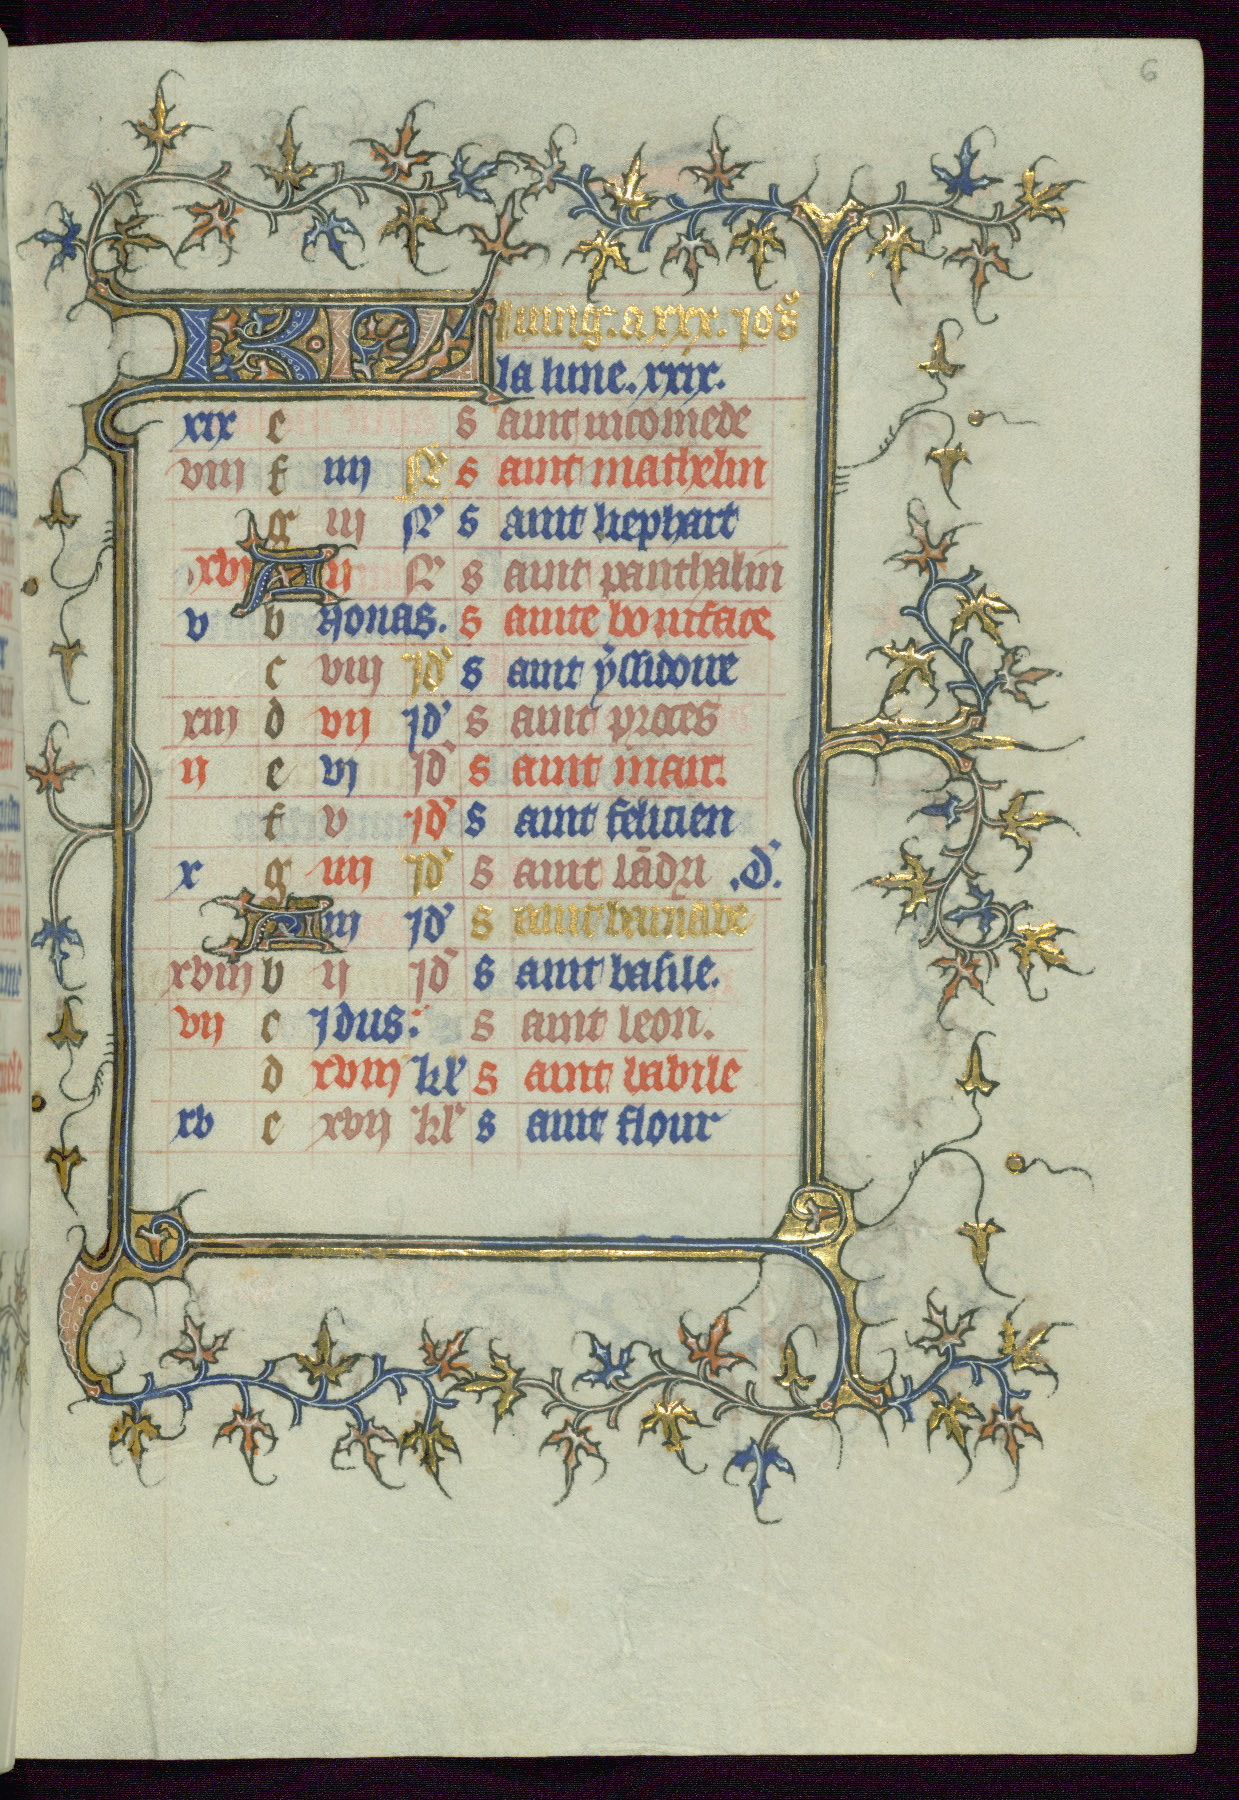 6
KL Juing. a xxx. jo's
la lune. xxix.
xix e s aint nicomede
viii f iiij N' s aint mathelin
g iij N' s aint liephart
xvi A ij N' s aint panthalin
v b Nonas. s ainte boniface
c viij jd' s aint yssidoire
xiij d vij jd' s aint proces
ij e vj jd' s aint marc.
f v jd' s aint felicien
x g iiij jd' s aint lādri .D.
A iij jd' s aint barnabe
xviij b ij jd' s aint basile.
vij c Jdus. s aint leon.
d xviij kl' s aint babile
xv e xvij kl' s aint flour